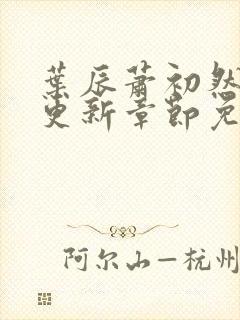 葉辰蕭初然
更新章節免
阿尔山—杭州